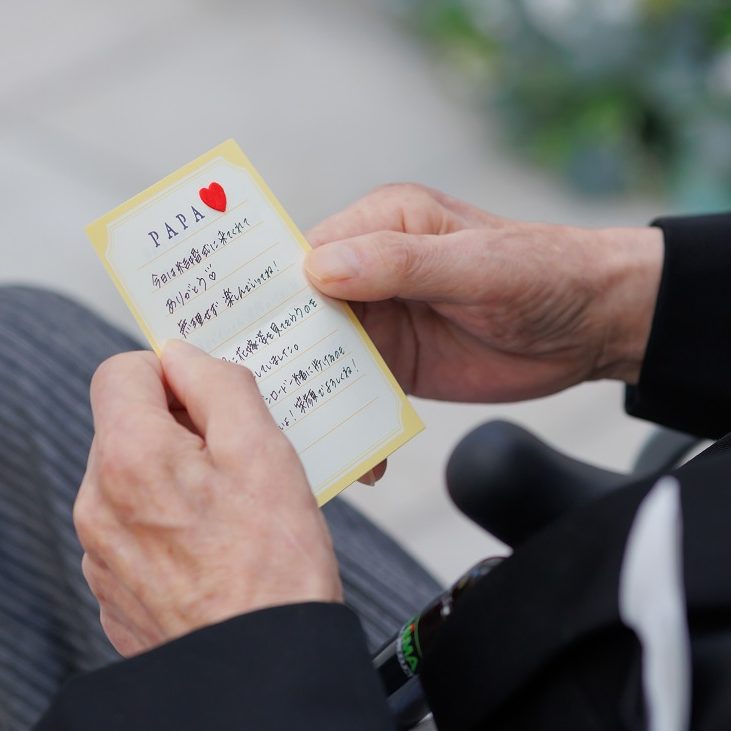 PAPA
今日は結婚式に来てくれて
ありがとう♡
無理せず 楽しんでいってね！
に花嫁姿を見てもらうのを
していました。
ンロード一緒に歩くのを
よ！笑顔でよろしくね！